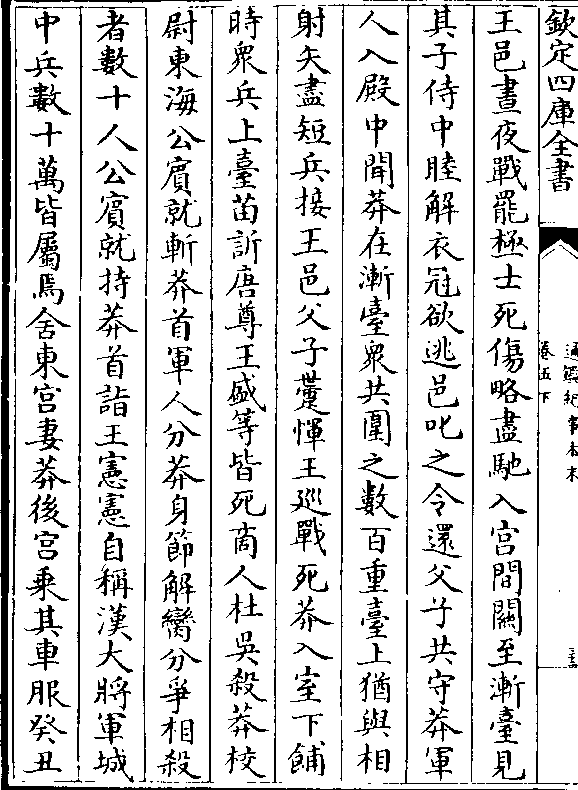 欽定四庫全書
通鑑紀事本末
卷五下
王邑晝夜戰罷極士死傷略盡馳入宫間關至漸臺見
其子侍中睦解衣冠欲逃邑叱之令還父子共守莽軍
人入殿中聞莽在漸臺衆共圍之數百重臺上猶與相
射矢盡短兵接王邑父子𧄼惲王巡戰死莽入室下餔
時衆兵上臺苗訢唐尊王盛等皆死商人杜吳殺莽校
尉東海公賓就斬莽首軍人分莽身節解臠分爭相殺
者數十人公賓就持莽首詣王憲憲自稱漢大將軍城
中兵數十萬皆屬焉舍東宫妻莽後宫乘其車服癸丑